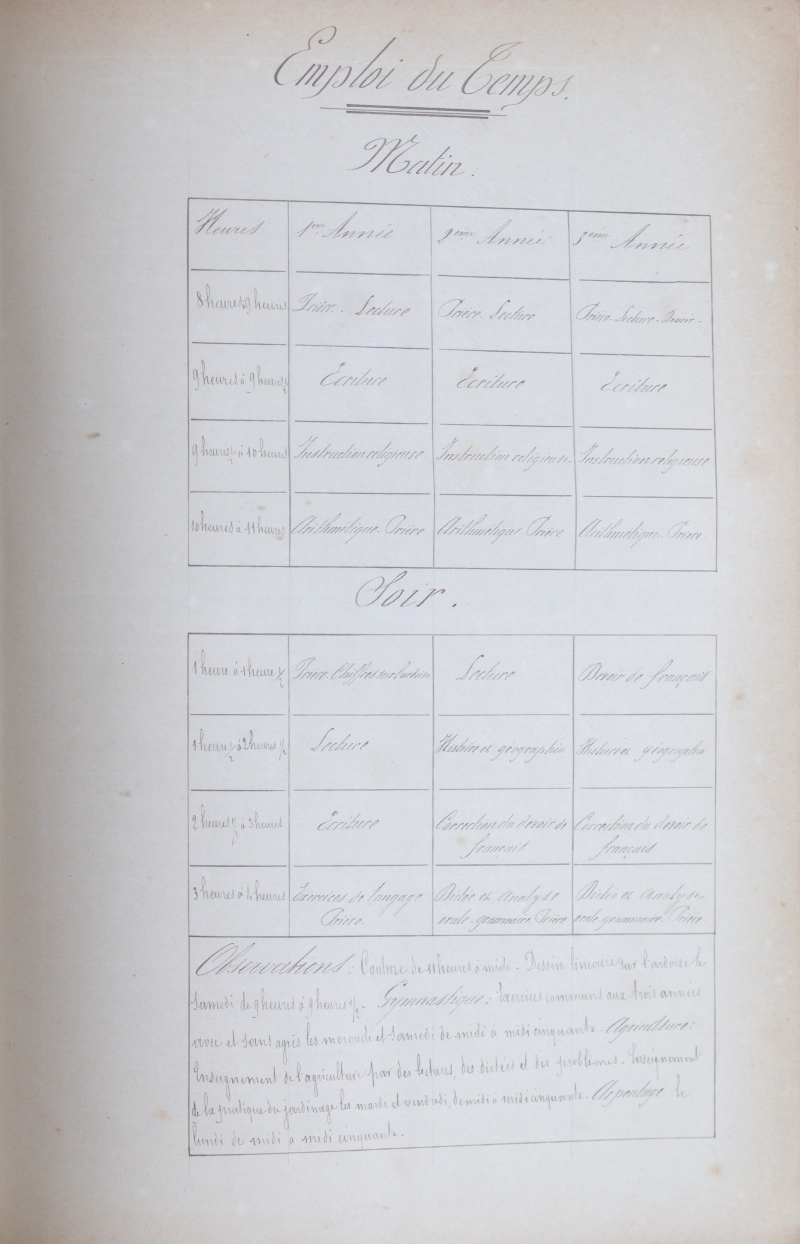 Emploi du Temps.
Matin.
Heures 1ère Année 2ème Année 3ème Année
8 heures à 9 heures Prière - Lecture Prière - Lecture Prière - Lecture - Devoir -
9 heures à 9 heures ½ Ecriture Ecriture Ecriture
9 heures ½ à 10 heures Instruction religieuse Instruction religieuse. Instruction religieuse
10 heures à 11 heures Arithmétique - Prière Arithmétique Prière Arithmétique - Prière -
Soir.
1 heure à 1 heure ½ Prière - Chiffres sur l'ardoise Lecture Devoir de français
1 heure ½ à 2 heures ½ Lecture Histoire et géographie Histoire et géographie
2 heures ½ à 3 heures Ecriture Correction du devoir de Correction du devoir de
français français
3 heures à 4 heures Exercices de langage Dictée et analyse Dictée et analyse
Prière. orale - grammaire. Prière orale grammaire. Prière
Observations: Couture de 11 heures à midi - Dessin linéaire sur l'ardoise le
samedi de 9 heures à 9 heures ½ - Gymnastique: Exercices communs aux trois années
avec et sans agrès les mercredi et samedi de midi à midi cinquante. Agriculture:
Enseignement de l'agriculture par des lectures, des dictées et des problèmes. Enseignement
de la pratique du jardinage les mardi et vendredi, de midi à midi cinquante. Arpentage le
lundi de midi à midi cinquante.